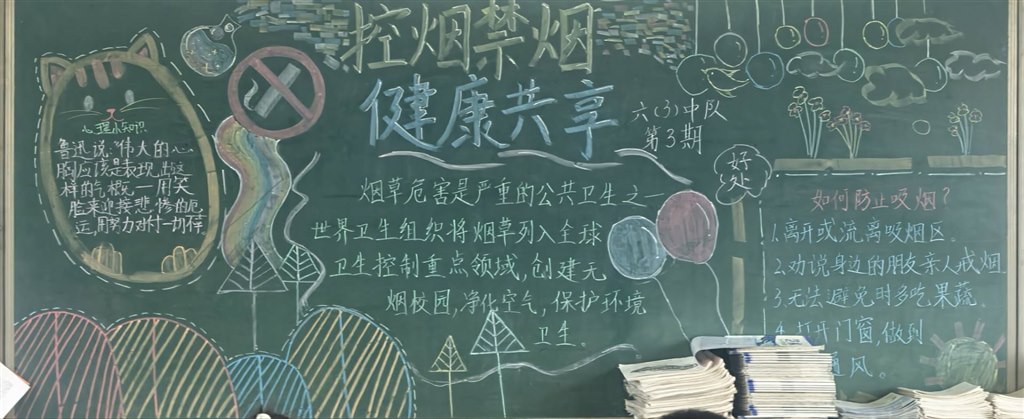 控烟禁烟
健康共享
六(3)中队
第3期
心理小知识
鲁迅说:"伟大的心
胸应该是表现出这
样的气概—用笑
脸来迎接悲惨的厄
运,用努力对付一切不
烟草危害是严重的公共卫生之一
世界卫生组织将烟草列入全球
卫生控制重点领域,创建无
烟校园,净化空气,保护环境
卫生。
好处
如何防止吸烟?
1.离开或流离吸烟区。
2.劝说身边的朋友亲人戒烟
3.无法避免时多吃果蔬。
4.打开门窗,做到
通风。